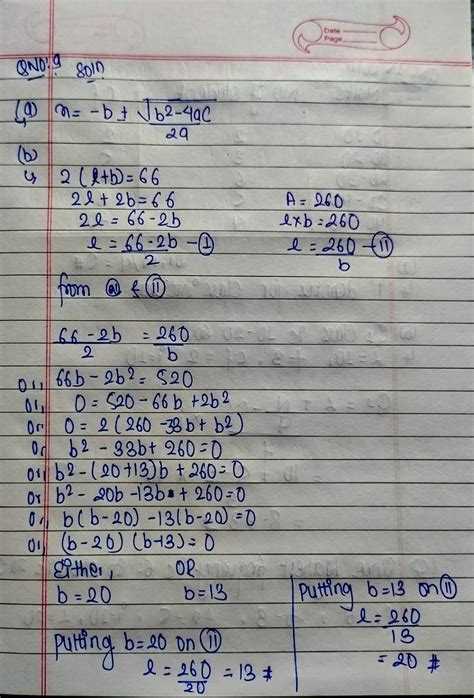 Date
Page
QNO:9 Soln
(a) x = -b ± √b²-4ac / 2a
(b)
↳ 2(l+b)=66
2l + 2b = 66 A = 260
2l = 66-2b l×b = 260
l = 66-2b / 2 - ① l = 260 / b - ⑪
from ⓐ & ⑪
66-2b / 2 = 260 / b
or, 66b - 2b² = 520
or, 0 = 520 - 66b + 2b²
or 0 = 2(260 - 33b + b²)
or b² - 33b + 260 = 0
or, b² - (20+13)b + 260 = 0
or b² - 20b - 13b + 260 = 0
or, b(b-20) - 13(b-20) = 0
or, (b-20) (b-13) = 0
Either, OR
b = 20 b = 13
putting b=13 on ⑪
l = 260 / 13
= 20 #
putting b=20 on ⑪
l = 260 / 20 = 13 #